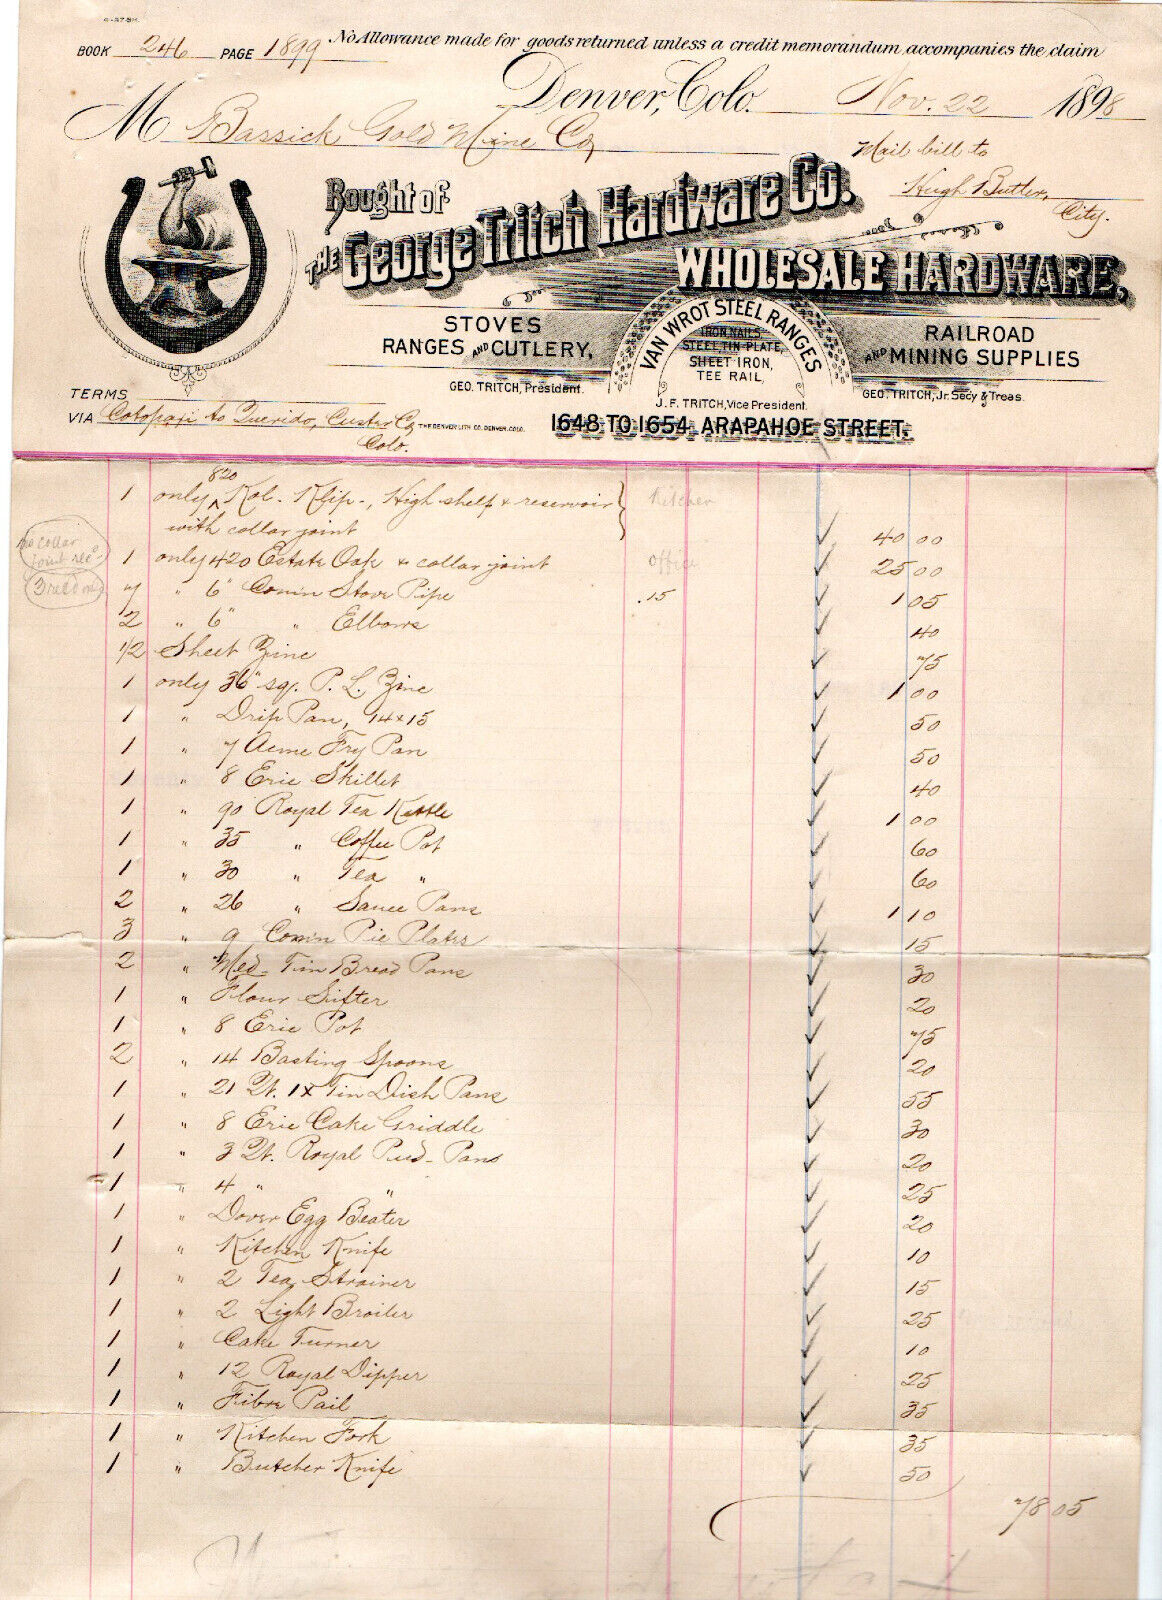 BOOK 246 PAGE 1899 No Allowance made for goods returned unless a credit memorandum accompanies the claim
Denver, Colo. Nov. 22 1898
M Bassick Gold Mine Co,
Mail bill to
Hugh Butler,
City.
Bought of
THE George Tritch Hardware Co.
WHOLESALE HARDWARE,
STOVES
RANGES AND CUTLERY,
VAN WROT STEEL RANGES
IRON, NAILS,
STEEL, TIN-PLATE,
SHEET IRON,
TEE RAIL,
RAILROAD
AND MINING SUPPLIES
GEO. TRITCH, President.
J. F. TRITCH, Vice President.
GEO. TRITCH, Jr. Secy & Treas.
TERMS
VIA Cotopaxi to Querido, Custer Co, THE DENVER LITH CO. DENVER, COLO.
Colo.
1648 TO 1654 ARAPAHOE STREET.
820
1 only Kob. Klip-, High shelf & reservoir Kitchen
with collar joint 40 00
no collar
joint rec'd
1 only 420 Estate Oak & collar joint office 25 00
3 rec'd only
7 " 6" Comin Stove Pipe .15 1 05
2 " 6" " Elbows 40
1/2 Sheet Zinc 75
1 only 36" sq. P. L. Zinc 1 00
1 " Drip Pan, 14x15 50
1 " 7 Acme Fry Pan 50
1 " 8 Erie Skillet 40
1 " 90 Royal Tea Kettle 1 00
1 " 35 " Coffee Pot 60
1 " 30 " Tea " 60
2 " 26 " Sauce Pans 1 10
3 " 9 Comin Pie Plates 15
2 " Med- Tin Bread Pans 30
1 " Flour Sifter 20
1 " 8 Erie Pot 75
2 " 14 Basting Spoons 20
1 " 21 Qt. 1x Tin Dish Pans 55
1 " 8 Erie Cake Griddle 30
1 " 3 Qt. Royal Pud- Pans 20
1 " 4 " " 25
1 " Dover Egg Beater 20
1 " Kitchen Knife 10
1 " 2 Tea Strainer 15
1 " 2 Light Broiler 25
1 " Cake Turner 10
1 " 12 Royal Dipper 25
1 " Fibre Pail 35
1 " Kitchen Fork 35
1 " Butcher Knife 50
78 05